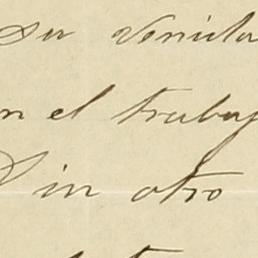 su venida
n el trabaj
Sin otro